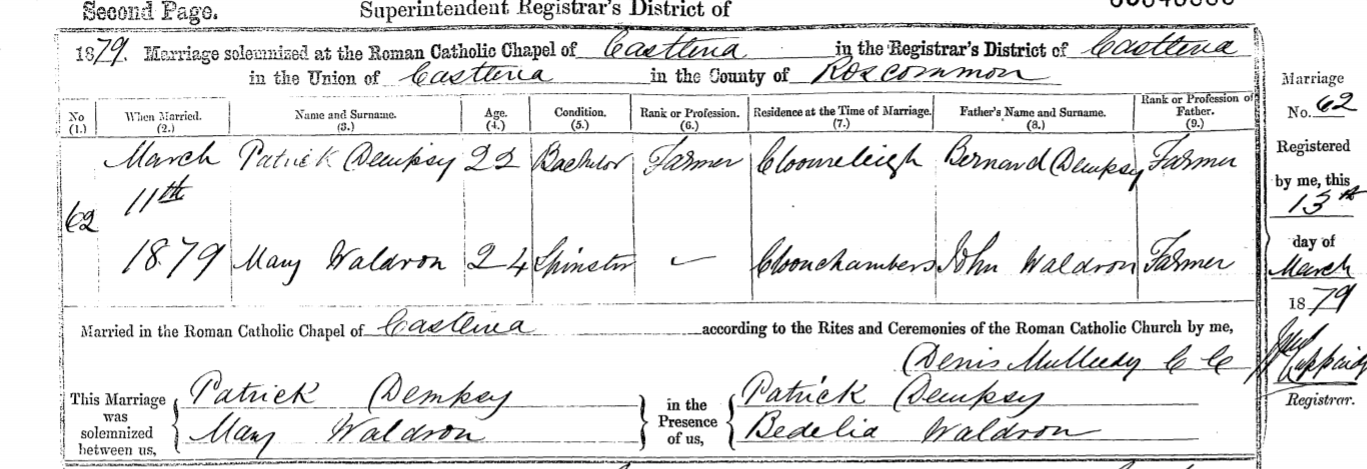 Second Page.
Superintendent Registrar's District of
1879. Marriage solemnized at the Roman Catholic Chapel of Castlerea in the Registrar's District of Castlerea
in the Union of Castlerea in the County of Roscommon
No (1.) When Married. (2.) Name and Surname. (3.) Age. (4.) Condition. (5.) Rank or Profession. (6.) Residence at the Time of Marriage. (7.) Father's Name and Surname. (8.) Rank or Profession of Father. (9.)
62 March 11th 1879
Patrick Dempsy 22 Bachelor Farmer Clooneleigh Bernard Dempsy Farmer
Mary Waldron 24 Spinster — Cloonchambers John Waldron Farmer
Married in the Roman Catholic Chapel of Castlerea according to the Rites and Ceremonies of the Roman Catholic Church by me,
Denis Mulleedy C C
This Marriage was solemnized between us,
Patrick Dempsy
Mary Waldron
in the Presence of us,
Patrick Dempsy
Bedelia Waldron
Marriage
No. 62
Registered
by me, this
13th
day of
March
1879
Registrar.